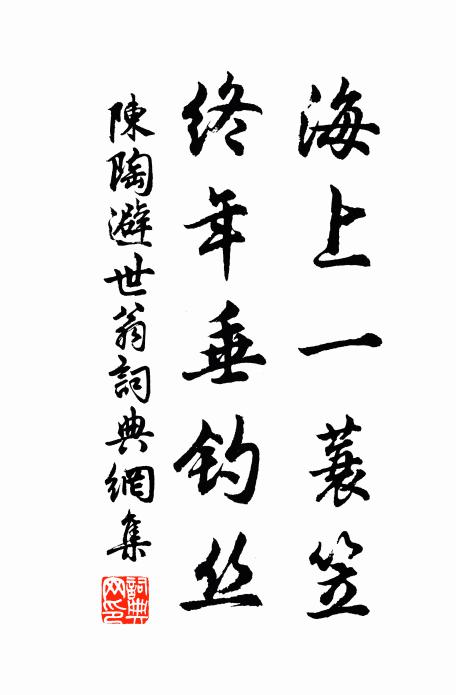 海上一蓑笠
终年垂钓丝
陳陶避世翁詞典網集
詞典网印